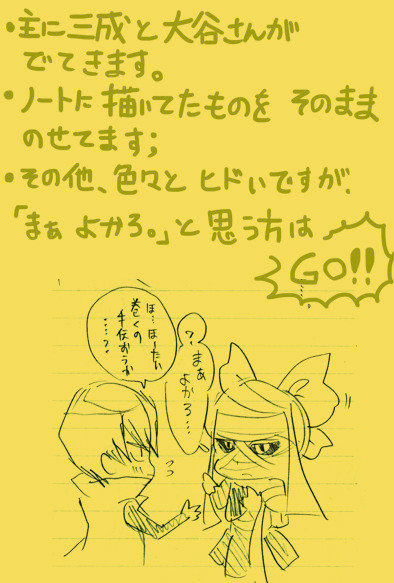 ・主に三成と大谷さんが
でてきます。
・ノートに描いてたものを そのまま
のせてます;
・その他、色々と ヒドいですが、
「まぁ よかろ。」と思う方は
GO!!
ほ…ほーたい
巻くの
手伝おうか
……?
?
まぁ
よかろ…